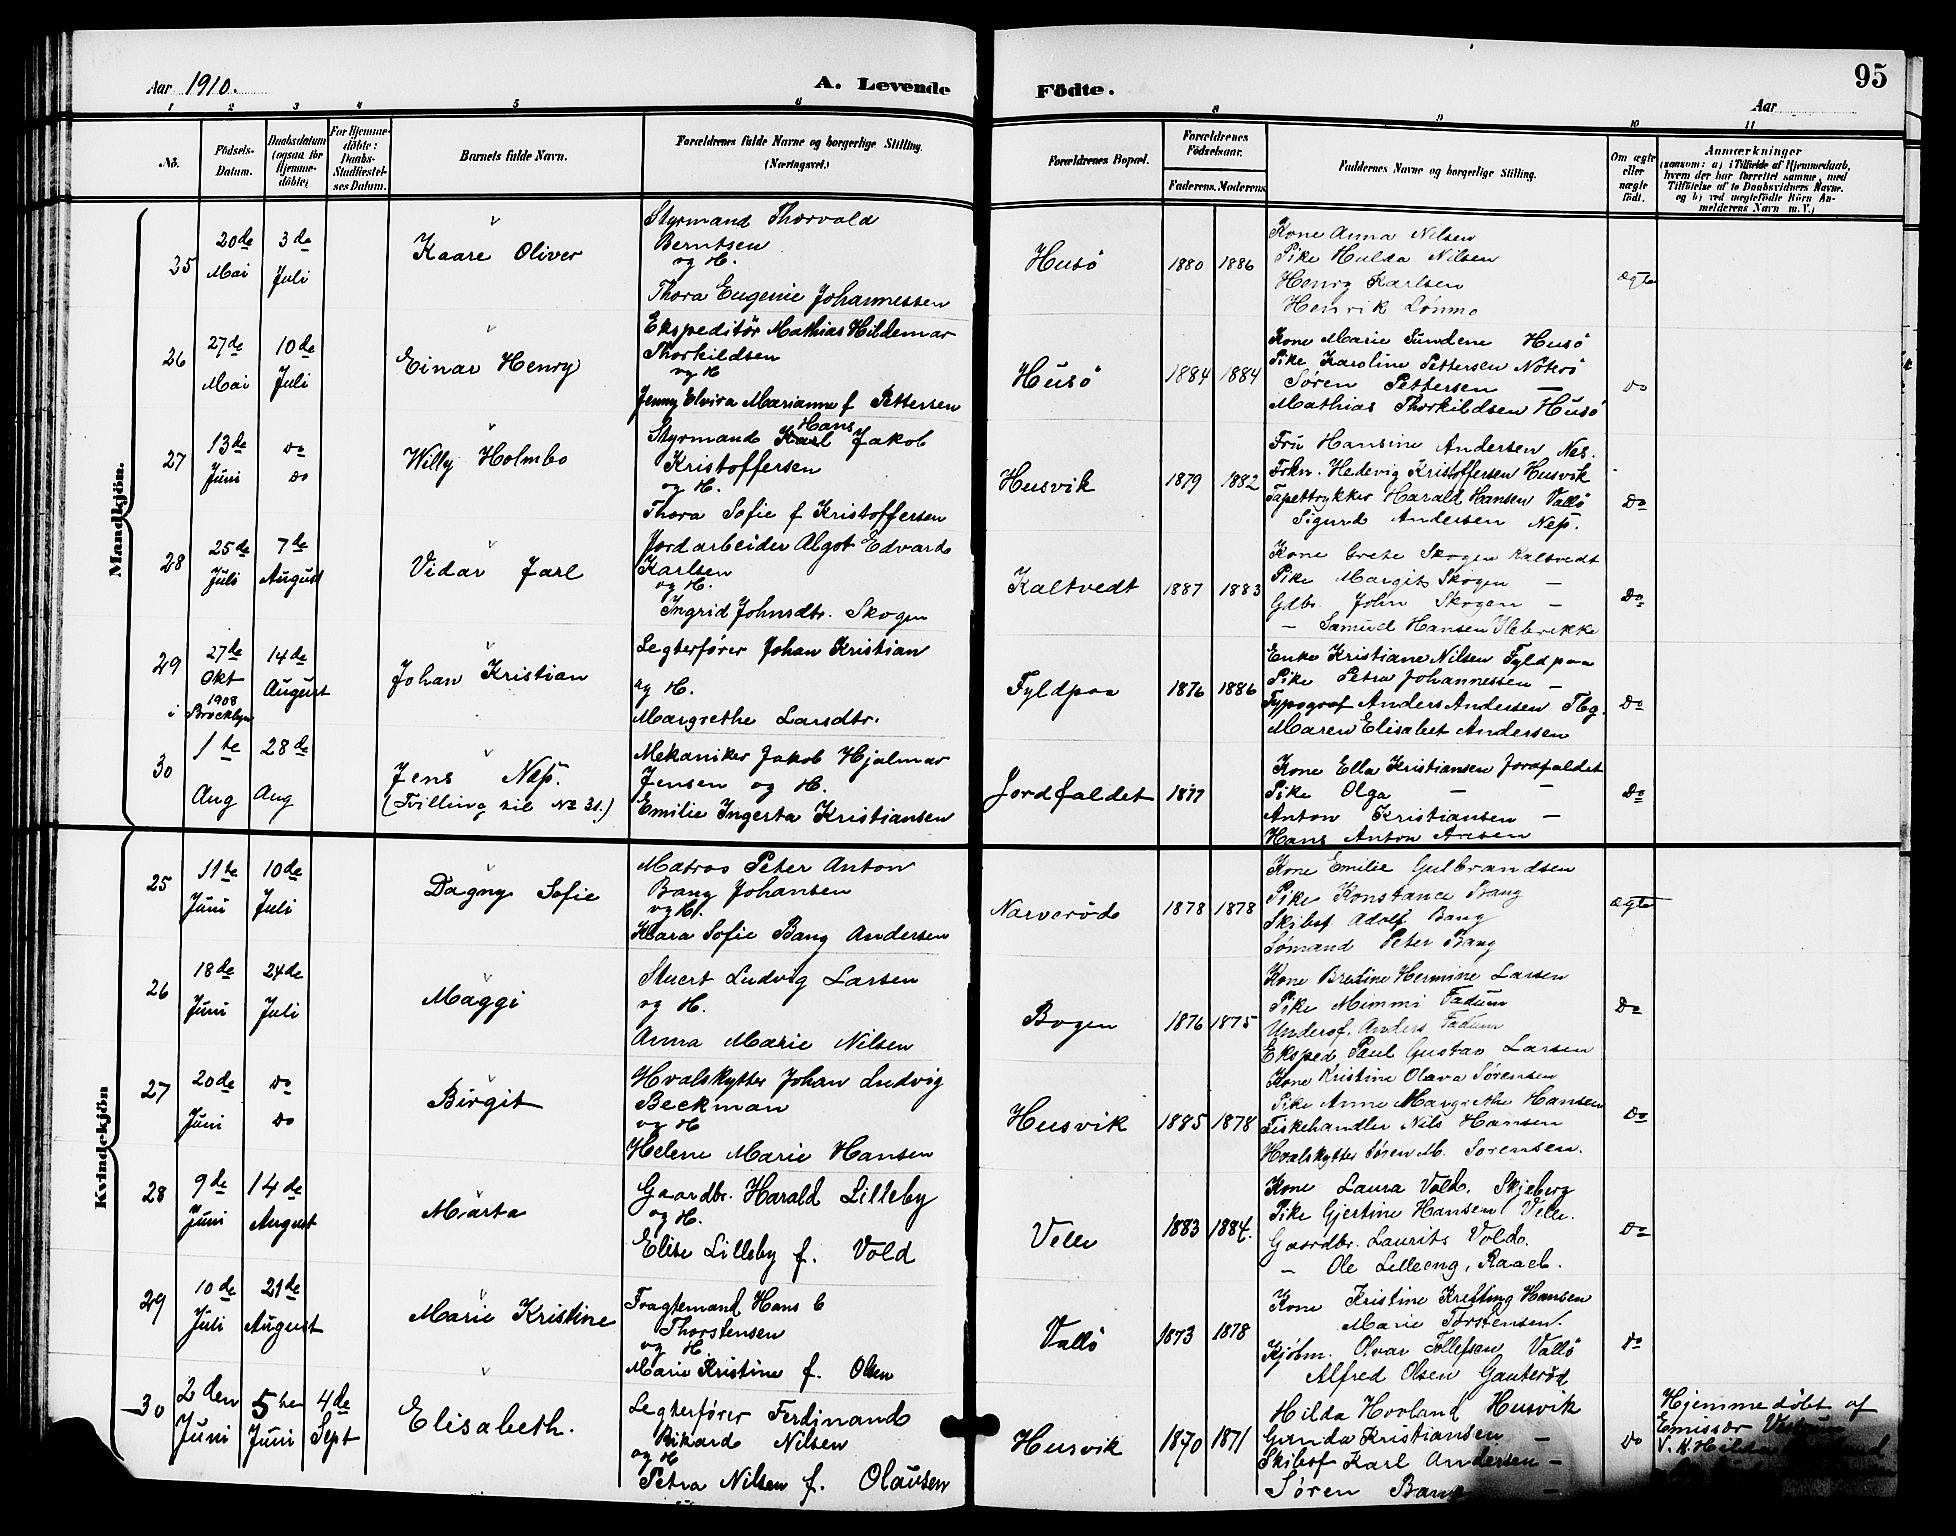 Aar 1910.
A. Levende Födte.
95
Aar
1 2 3 4 5 6 8 9 10 11
No.
Födsels-Datum.
Daabsdatum (ogsaa for Hjemme-döbte)
For Hjemme-döbte: Daabs-Stadfæstel-ses Datum.
Barnets fulde Navn.
Forældrenes fulde Navne og borgerlige Stilling. (Næringsvei.)
Forældrenes Bopæl.
Forældrenes Födselsaar.
Faderens. Moderens.
Faddernes Navne og borgerlige Stilling.
Om ægte eller uægte födt.
Anmærkninger
(saasom: a) i Tilfælde af Hjemmedaab, hvem der har forrettet samme, med Tilföielse af to Daabsvidners Navne. og b) ved uægtefödte Börn An-melderens Navn m. V.)
Mandkjön.
25
20de Mai
3de Juli
Kaare Oliver
Styrmand Thorvald
Berntsen
og H.
Thora Eugenie Johannessen
Husö
1880 1886
Kone Anna Nilsen
Pike Hulda Nilsen
Henry Karlsen
Henrik Lönmo
ægte
26
27de Mai
10de Juli
Einar Henry
Ekspeditör Mathias Hildemar
Thorkildsen
og H
Jenny Elvira Marianne f Pettersen
Husö
1884 1884
Kone Marie Sundene Husö
Pike Karoline Pettersen Nöterö
Sören Pettersen —
Mathias Thorkildsen Husö
do
27
13de Juni
do do
Willy Holmbo
Styrmand Karl Hans Jakob
Kristoffersen
og H.
Thora Sofie f Kristoffersen
Husvik
1879 1882
Fru Hansine Andersen Nes.
Frkn. Hedevig Kristoffersen Husvik
Tapettrykker Harald Hansen Vallö
Sigurd Andersen Næs.
Do
28
25de Juli
7de August
Vidar Jarl
Jordarbeider Algot Edvard
Karlsen
og H.
Ingrid Johnsdtr. Skogen
Kaltvedt
1887 1883
Kone Grete Skogen Kaltvedt
Pike Margit Skogen —
Gdbr. John Skogen —
— Samuel Hansen Ilebrekke
Do
29
27de Okt 1908
i Brocklyn
14de August
Johan Kristian
Legterförer Johan Kristian
og H.
Margrethe Larsdtr.
Fyldpaa
1876 1886
Enke Kristiane Nilsen Fyldpaa
Pike Petra Johannessen —
Typograf Anders Andersen Tbg.
Maren Elisabet Andersen
Do
30
1te Aug
28de Aug
Jens Næs.
(Tvilling til No 31.)
Mekaniker Jakob Hjalmar
Jensen og H.
Emilie Ingerta Kristiansen
Jordfaldet
1877
Kone Ella Kristiansen Jordfaldet
Pike Olga — —
Anton Kristiansen —
Hans Anton Aasen
Do
Kvindekjön
25
11te Juni
10de Juli
Dagny Sofie
Matros Peter Anton
Bang Johansen
og H.
Klara Sofie Bang Andersen
Narveröd
1878 1878
Kone Emilie Gulbrandsen
Pike Konstance Bang
Skibsf Adolf Bang
Sömand Peter Bang
ægte
26
18de Juni
24de Juli
Maggi
Stuert Ludvig Larsen
og H.
Anna Marie Nilsen
Bogen
1876 1875
Kone Bredine Hermine Larsen
Pike Mimmi Fadum
Underof. Anders Fadum
Eksped Paul Gustav Larsen
Do
27
20de Juni
do do
Birgit
Hvalskytter Johan Ludvig
Beckman
og H
Helene Marie Hansen
Husvik
1885 1878
Kone Kristine Olava Sörensen
Pike Anne Margrethe Hansen
Fiskehandler Nils Hansen
Hvalskytter Sören M. Sörensen.
Do
28
9de Juni
14de August
Märta
Gaardbr. Harald Lilleby
og H.
Elise Lilleby f. Vold
Velle
1883 1884.
Kone Laura Vold. Skjeberg
Pike Gjertine Hansen Velle.
Gaardbr. Laurits Vold.
— Ole Lilleeng, Raael.
Do
29
10de Juli
21de August
Marie Kristine
Fragtemand Hans C
Thorstensen
og H.
Marie Kristine f. Olsen
Vallö
1873 1878
Kone Kristine Kresting Hansen
Marie Torstensen.
Kjöbm. Olvar Tollefsen Vallö
Alfred Olsen Gauteröd
do
30
2den Juni
5te Juni
4de Sept
Elisabeth.
Legterförer Ferdinand
Rikard Nilsen
og H
Petra Nilsen f. Olausen
Husvik
1870 1871
Hilda Hovland Husvik
Gunda Kristiansen —
Skibsf Karl Andersen —
Sören Bang —
Do
Hjemmedöbt af
Emissær